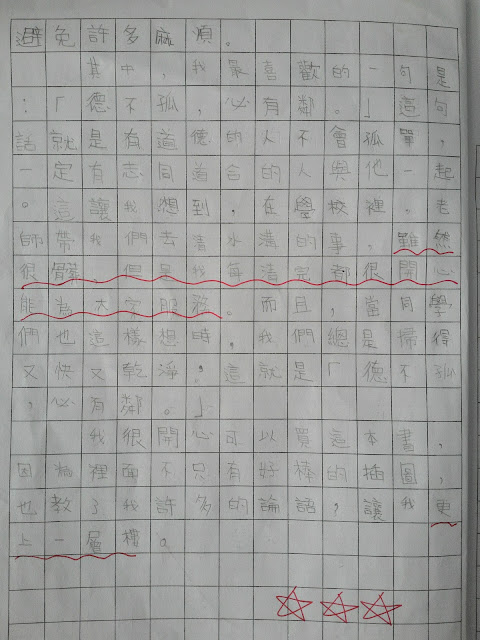 避免許多麻煩。
其中，我最喜歡的一句是
：「德不孤，必有鄰。」這句
話就是有道德的人不會孤單，
一定有志同道合的人與他一起
。這讓我想到，在學校裡，老
師帶我們去清水溝的事，雖然
很髒，但是我每清完都很開心
能為大家服務。而且，當同學
們也這樣想時，我們總是掃得
又快又乾淨，這就是「德不孤
，必有鄰。」
我很開心可以買這本書，
因為裡面不只有好棒的插圖，
也教了我許多的論語，讓我更
上一層樓。